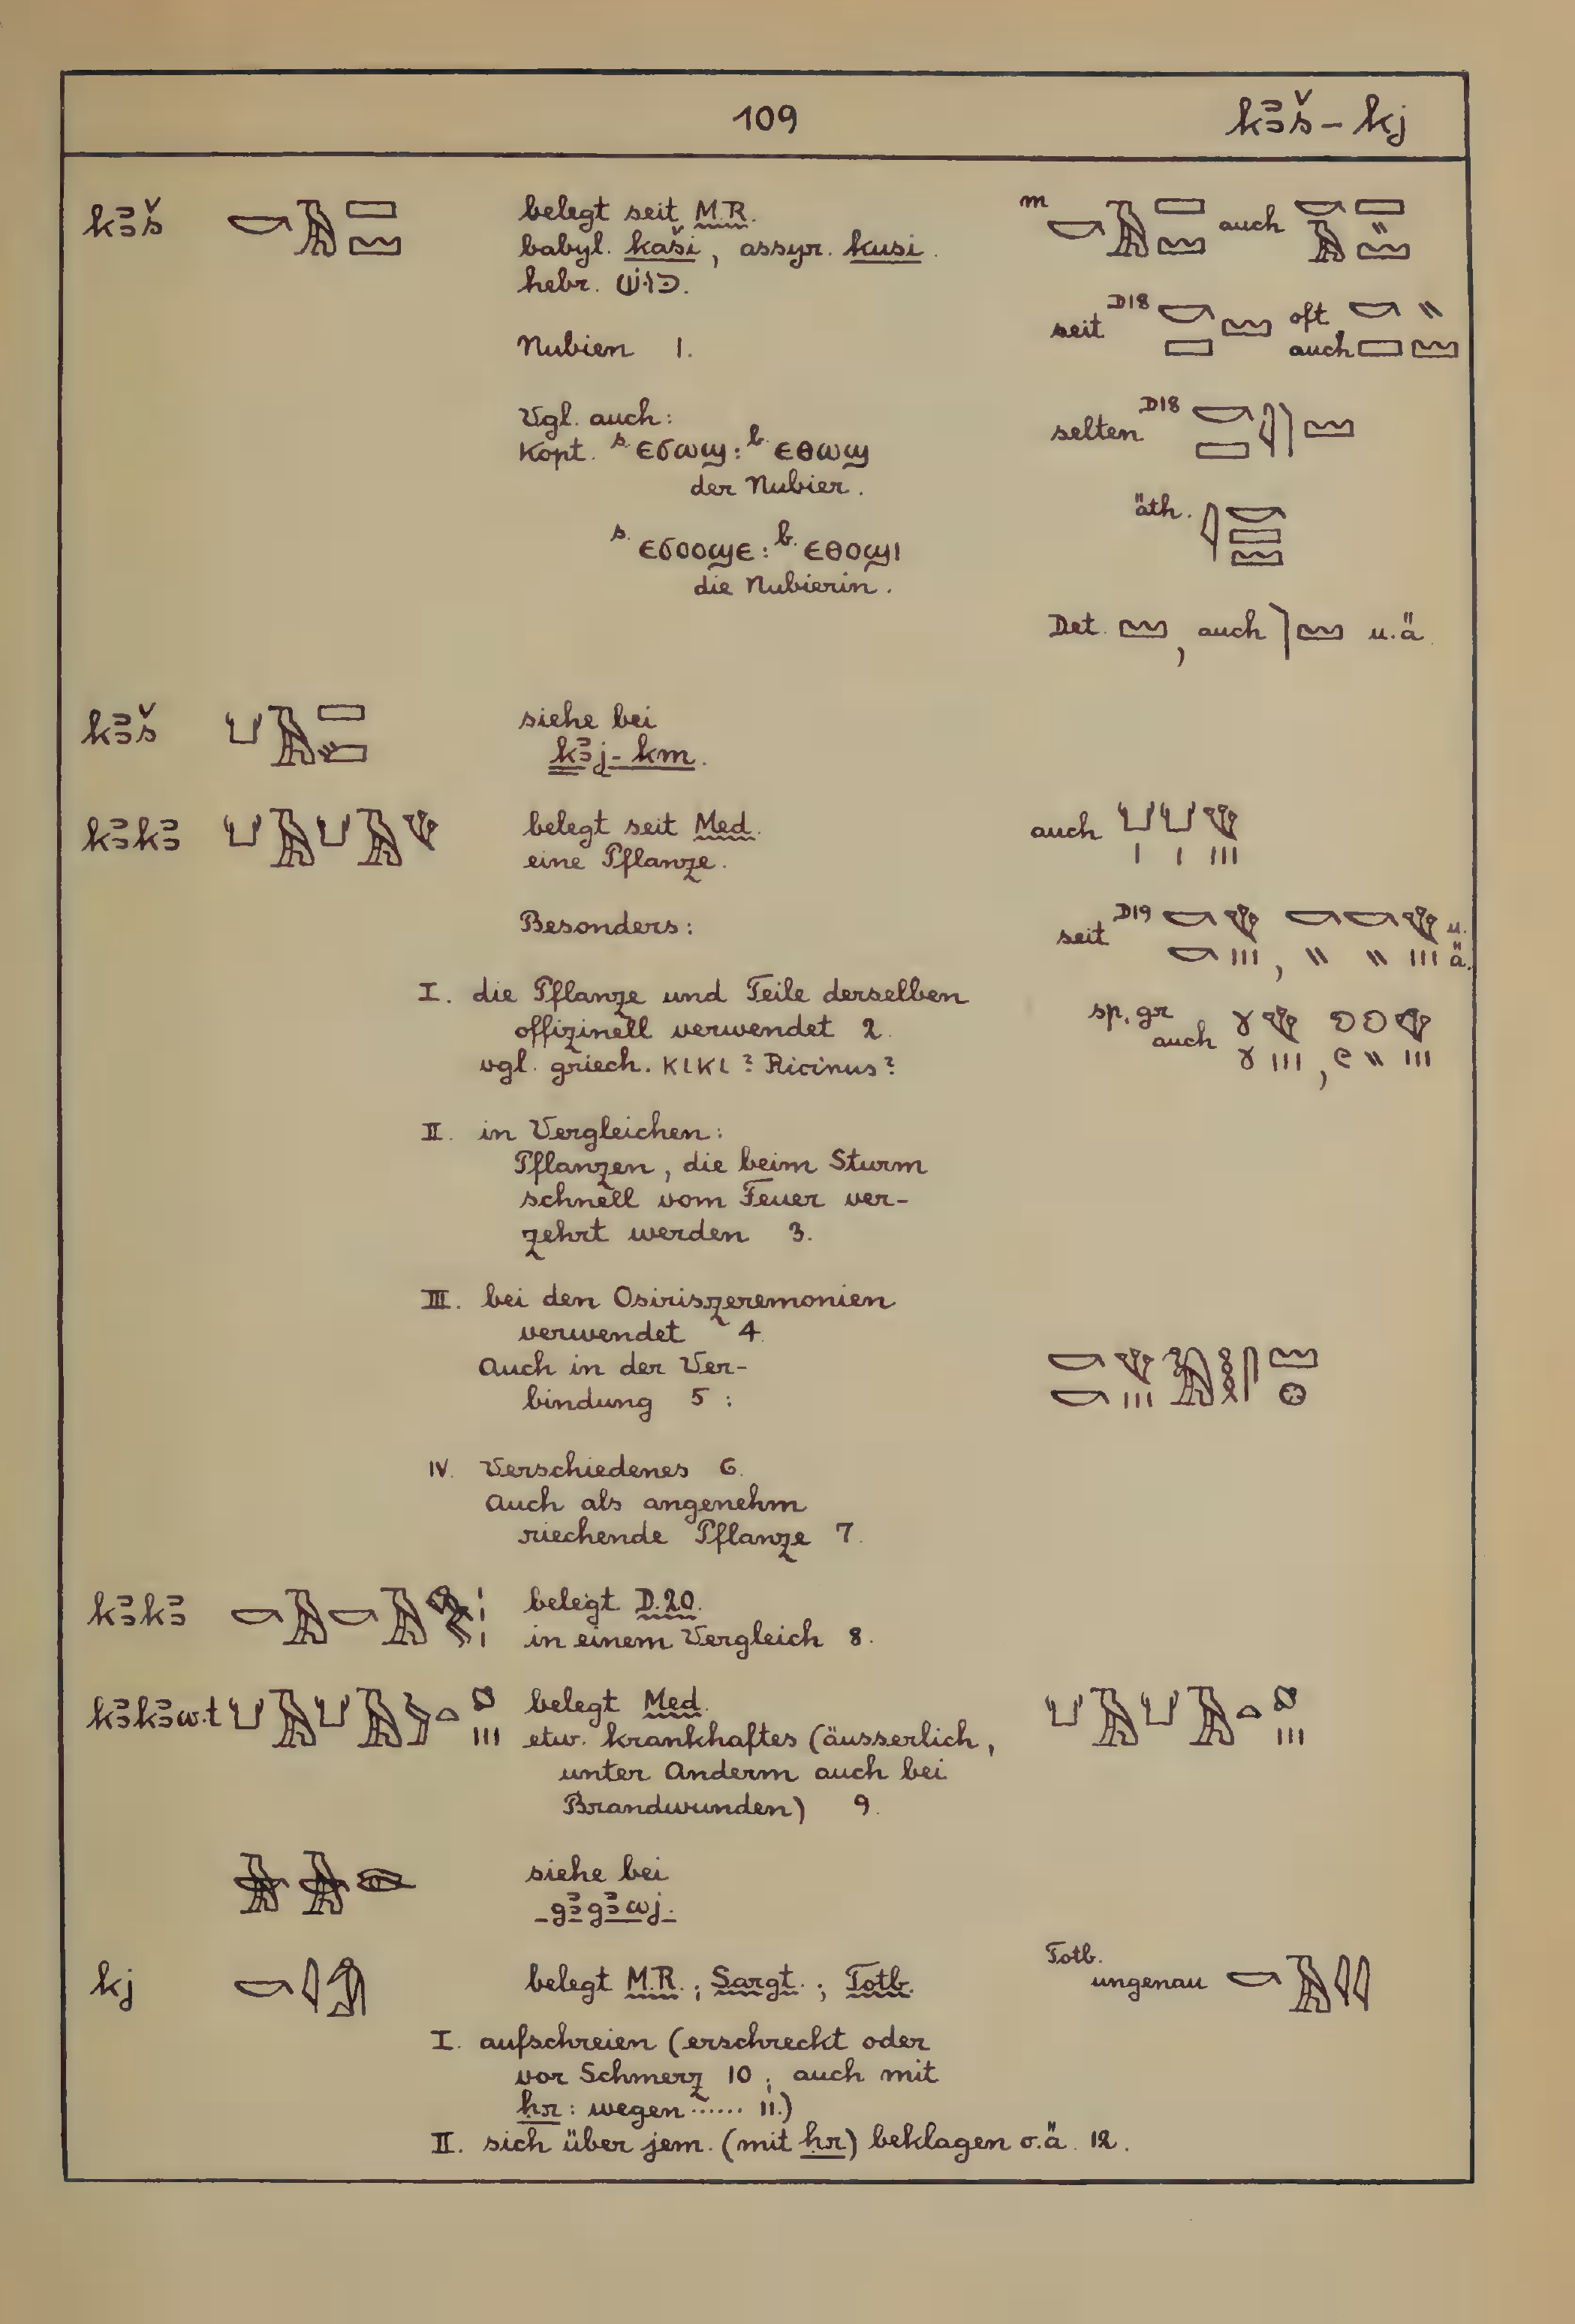 109 kꜣš – kj
kꜣš belegt seit M.R.
babyl. kaši, assyr. kusi.
hebr. כּוּשׁ.
Nubien 1.
Vgl. auch:
Kopt. s. ⲉϭⲱϣ : b. ⲉⲑⲱϣ
der Nubier.
s. ⲉϭⲟⲟϣⲉ : b. ⲉⲑⲟϣⲓ
die Nubierin.
m auch
seit D18 oft,
auch
selten D18
äth.
Det. , auch u.ä.
kꜣš siehe bei
kꜣj-km.
kꜣkꜣ belegt seit Med.
eine Pflanze.
Besonders:
I. die Pflanze und Teile derselben
offizinell verwendet 2.
vgl. griech. κικι? Ricinus?
II. in Vergleichen:
Pflanzen, die beim Sturm
schnell vom Feuer ver-
zehrt werden 3.
III. bei den Osiriszeremonien
verwendet 4.
Auch in der Ver-
bindung 5 :
IV. Verschiedenes 6.
Auch als angenehm
riechende Pflanze 7.
auch
seit D19 , u.
ä.
sp. gr
auch ,
kꜣkꜣ belegt D.20.
in einem Vergleich 8.
kꜣkꜣw.t belegt Med.
etw. krankhaftes (äusserlich,
unter Anderm auch bei
Brandwunden) 9.
siehe bei
gꜣgꜣwj.
kj belegt M.R.; Sargt.; Totb.
I. aufschreien (erschreckt oder
vor Schmerz 10; auch mit
ḥr: wegen ...... 11.)
II. sich über jem. (mit ḥr) beklagen o.ä. 12.
Totb.
ungenau